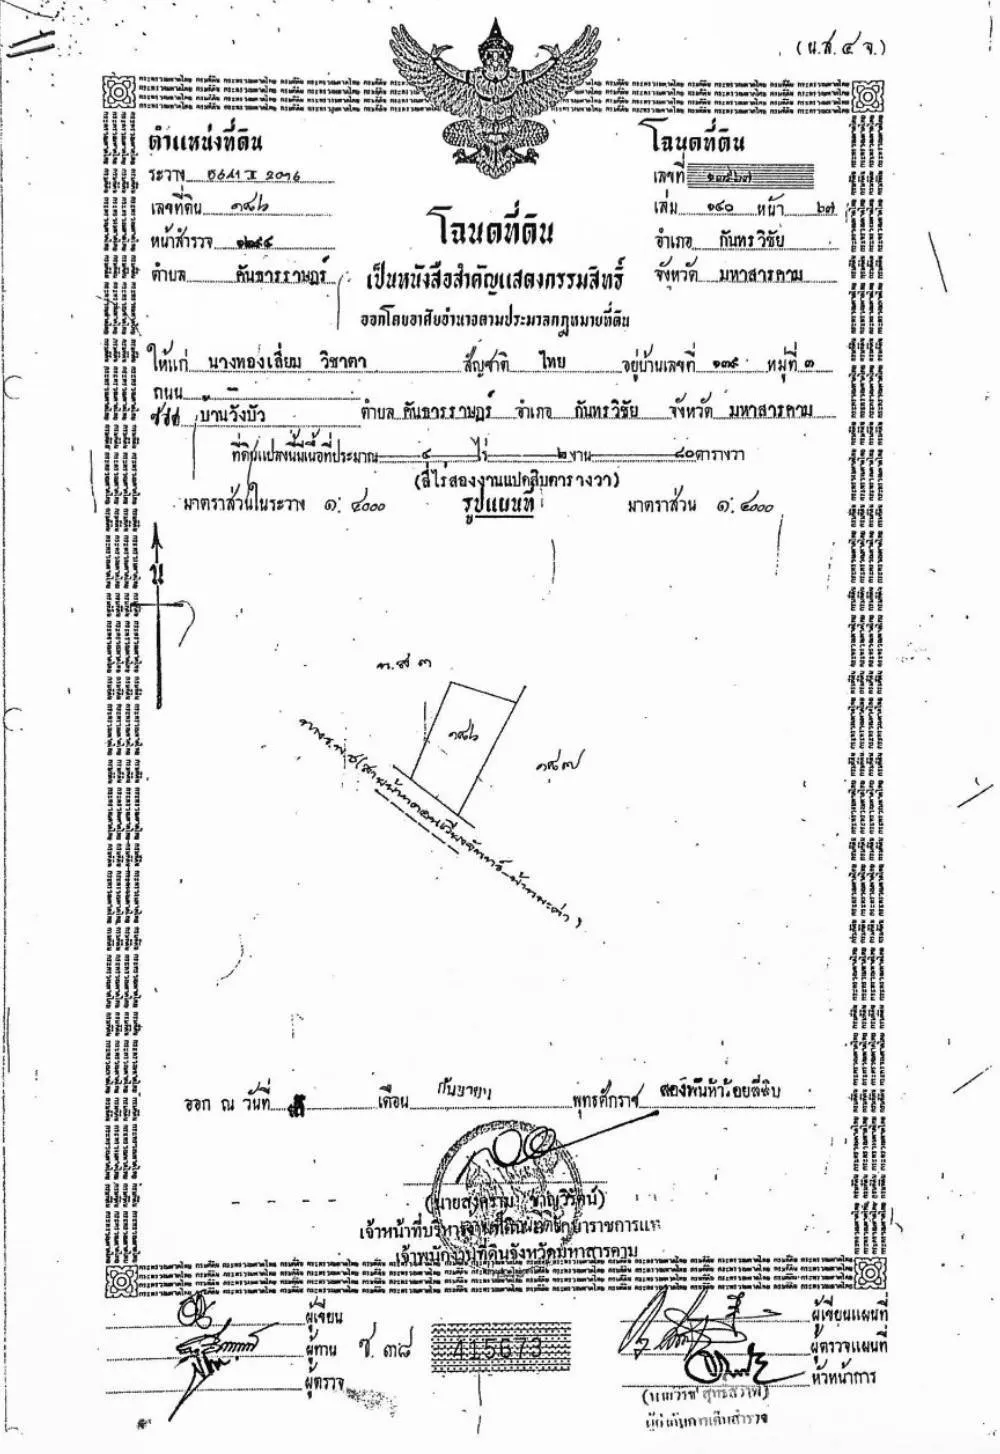 (น.ส.๔ จ.)
ตำแหน่งที่ดิน
ระวาง 5641 I 2016
เลขที่ดิน ๑๘๖
หน้าสำรวจ ๑๒๙๔
ตำบล คันธารราษฎร์
โฉนดที่ดิน
เลขที่
เล่ม ๑๔๐ หน้า ๖๗
อำเภอ กันทรวิชัย
จังหวัด มหาสารคาม
โฉนดที่ดิน
เป็นหนังสือสำคัญแสดงกรรมสิทธิ์
ออกโดยอาศัยอำนาจตามประมวลกฎหมายที่ดิน
ให้แก่ นางทองเลี่ยม วิชาตา สัญชาติ ไทย อยู่บ้านเลขที่ ๑๓๙ หมู่ที่ ๓
ถนน
บ้านวังบัว ตำบล คันธารราษฎร์ อำเภอ กันทรวิชัย จังหวัด มหาสารคาม
ที่ดินแปลงนี้มีเนื้อที่ประมาณ ๔ ไร่ ๒ งาน ๘๐ ตารางวา
(สี่ไร่สองงานแปดสิบตารางวา)
มาตราส่วนในระวาง ๑:๔๐๐๐ รูปแผนที่ มาตราส่วน ๑:๔๐๐๐
น
๑๘๖
๑๘๗
ออก ณ วันที่ เดือน กันยายน พุทธศักราช สองพันห้าร้อยสี่สิบ
(นายสงคราม ชาญวิรัตน์)
เจ้าพนักงานที่ดินจังหวัดมหาสารคาม
ผู้เขียน
ผู้ทาน
ผู้ตรวจ
ช.๓๘
415673
ผู้เขียนแผนที่
ผู้ตรวจแผนที่
หัวหน้าการ